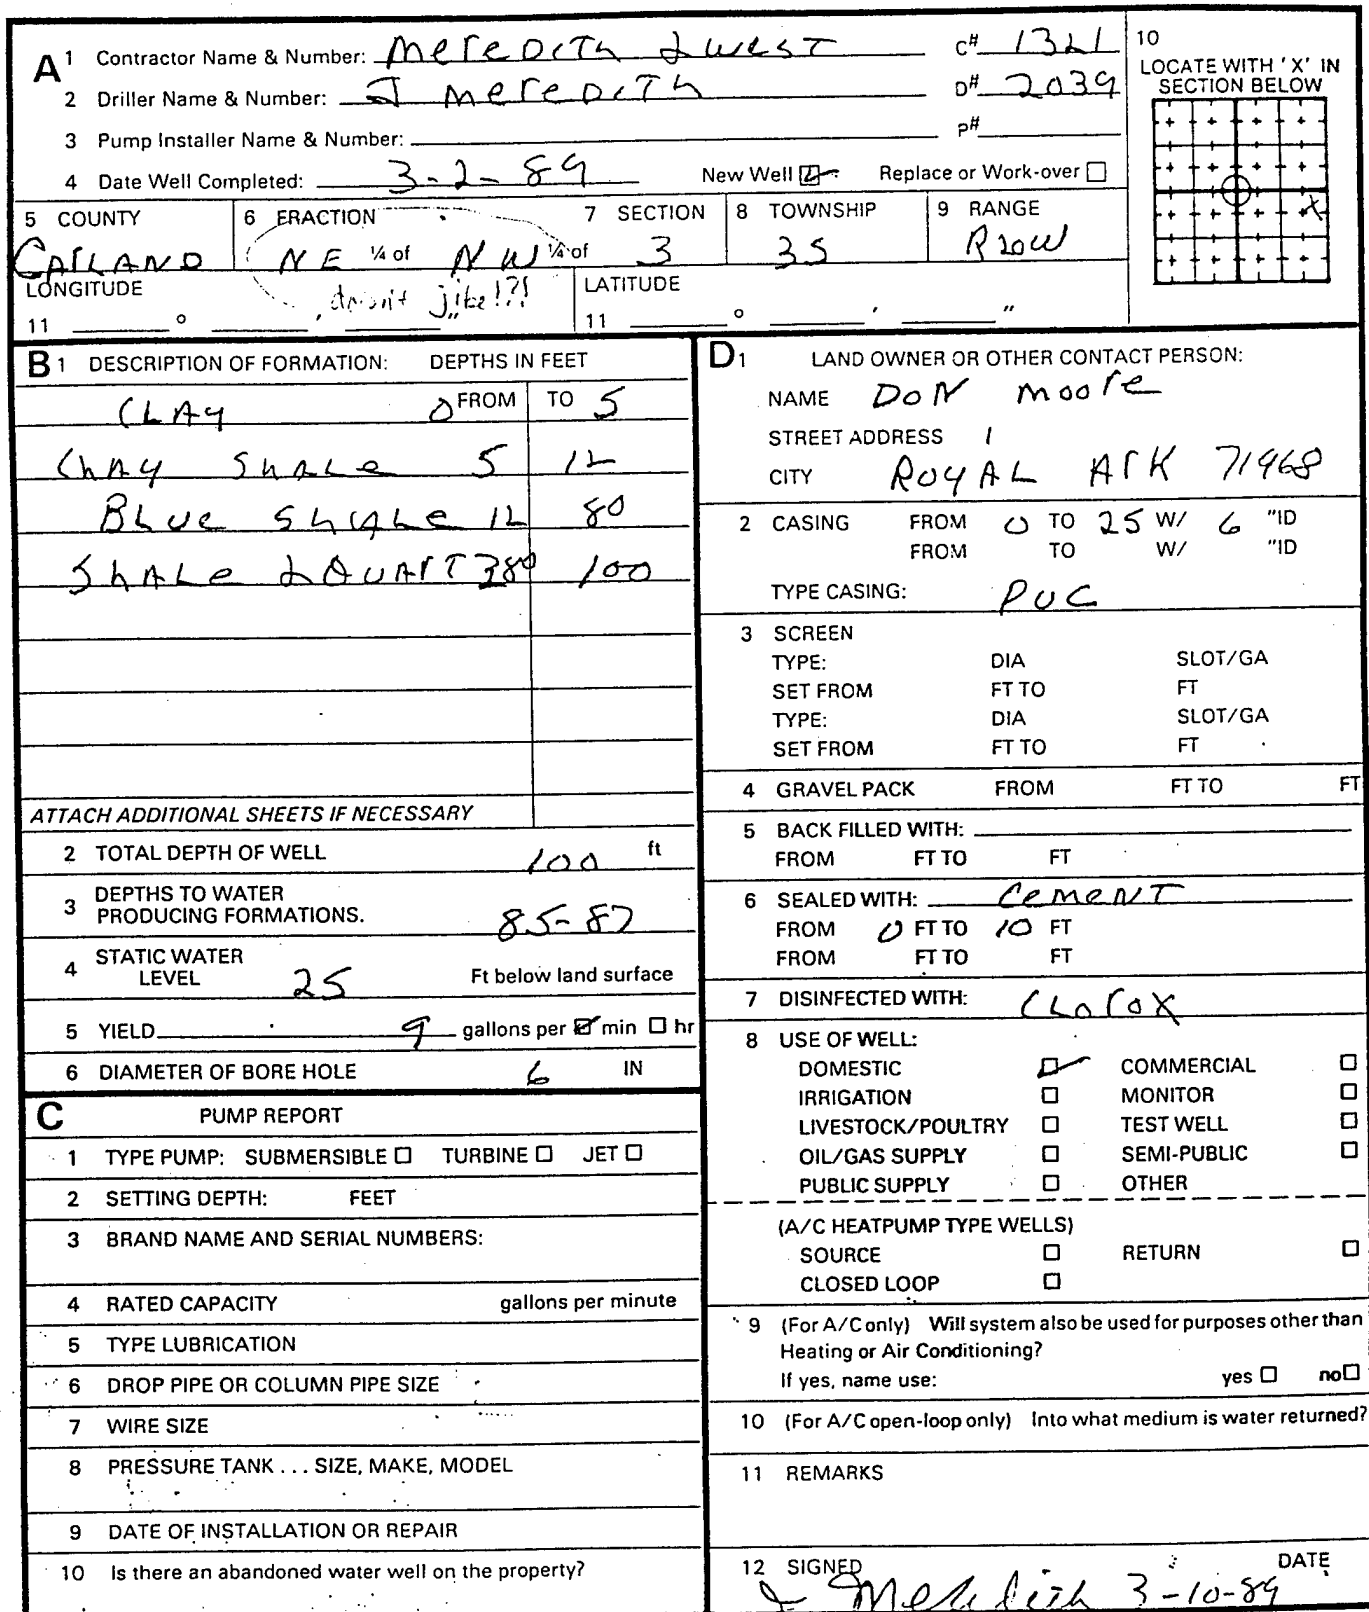 A 1 Contractor Name & Number: Meredith & West C# 1321
2 Driller Name & Number: J Meredith D# 2039
3 Pump Installer Name & Number: P#
4 Date Well Completed: 3-2-89 New Well Replace or Work-over
10 LOCATE WITH 'X' IN SECTION BELOW
X
5 COUNTY GArLAND
6 FRACTION NE ¼ of NW ¼ of
7 SECTION 3
8 TOWNSHIP 3S
9 RANGE R20W
doesn't jibe!?!
LONGITUDE 11 ° ' "
LATITUDE 11 ° ' "
B 1 DESCRIPTION OF FORMATION: DEPTHS IN FEET
FROM TO
CLAY 0 5
CLAY SHALe 5 12
BLUe SHALe 12 80
SHALe & QUARTZ 80 100
ATTACH ADDITIONAL SHEETS IF NECESSARY
2 TOTAL DEPTH OF WELL 100 ft
3 DEPTHS TO WATER
PRODUCING FORMATIONS. 85-87
4 STATIC WATER
LEVEL 25 Ft below land surface
5 YIELD 9 gallons per min hr
6 DIAMETER OF BORE HOLE 6 IN
C PUMP REPORT
1 TYPE PUMP: SUBMERSIBLE TURBINE JET
2 SETTING DEPTH: FEET
3 BRAND NAME AND SERIAL NUMBERS:
4 RATED CAPACITY gallons per minute
5 TYPE LUBRICATION
6 DROP PIPE OR COLUMN PIPE SIZE
7 WIRE SIZE
8 PRESSURE TANK . . . SIZE, MAKE, MODEL
9 DATE OF INSTALLATION OR REPAIR
10 Is there an abandoned water well on the property?
D 1 LAND OWNER OR OTHER CONTACT PERSON:
NAME DON Moore
STREET ADDRESS 1
CITY ROYAL ArK 71968
2 CASING FROM 0 TO 25 W/ 6 "ID
FROM TO W/ "ID
TYPE CASING: PVC
3 SCREEN
TYPE: DIA SLOT/GA
SET FROM FT TO FT
TYPE: DIA SLOT/GA
SET FROM FT TO FT
4 GRAVEL PACK FROM FT TO FT
5 BACK FILLED WITH:
FROM FT TO FT
6 SEALED WITH: CeMeNT
FROM 0 FT TO 10 FT
FROM FT TO FT
7 DISINFECTED WITH: CLOrOX
8 USE OF WELL:
DOMESTIC COMMERCIAL
IRRIGATION MONITOR
LIVESTOCK/POULTRY TEST WELL
OIL/GAS SUPPLY SEMI-PUBLIC
PUBLIC SUPPLY OTHER
(A/C HEATPUMP TYPE WELLS)
SOURCE RETURN
CLOSED LOOP
9 (For A/C only) Will system also be used for purposes other than
Heating or Air Conditioning?
If yes, name use: yes no
10 (For A/C open-loop only) Into what medium is water returned?
11 REMARKS
12 SIGNED DATE
J Meredith 3-10-89